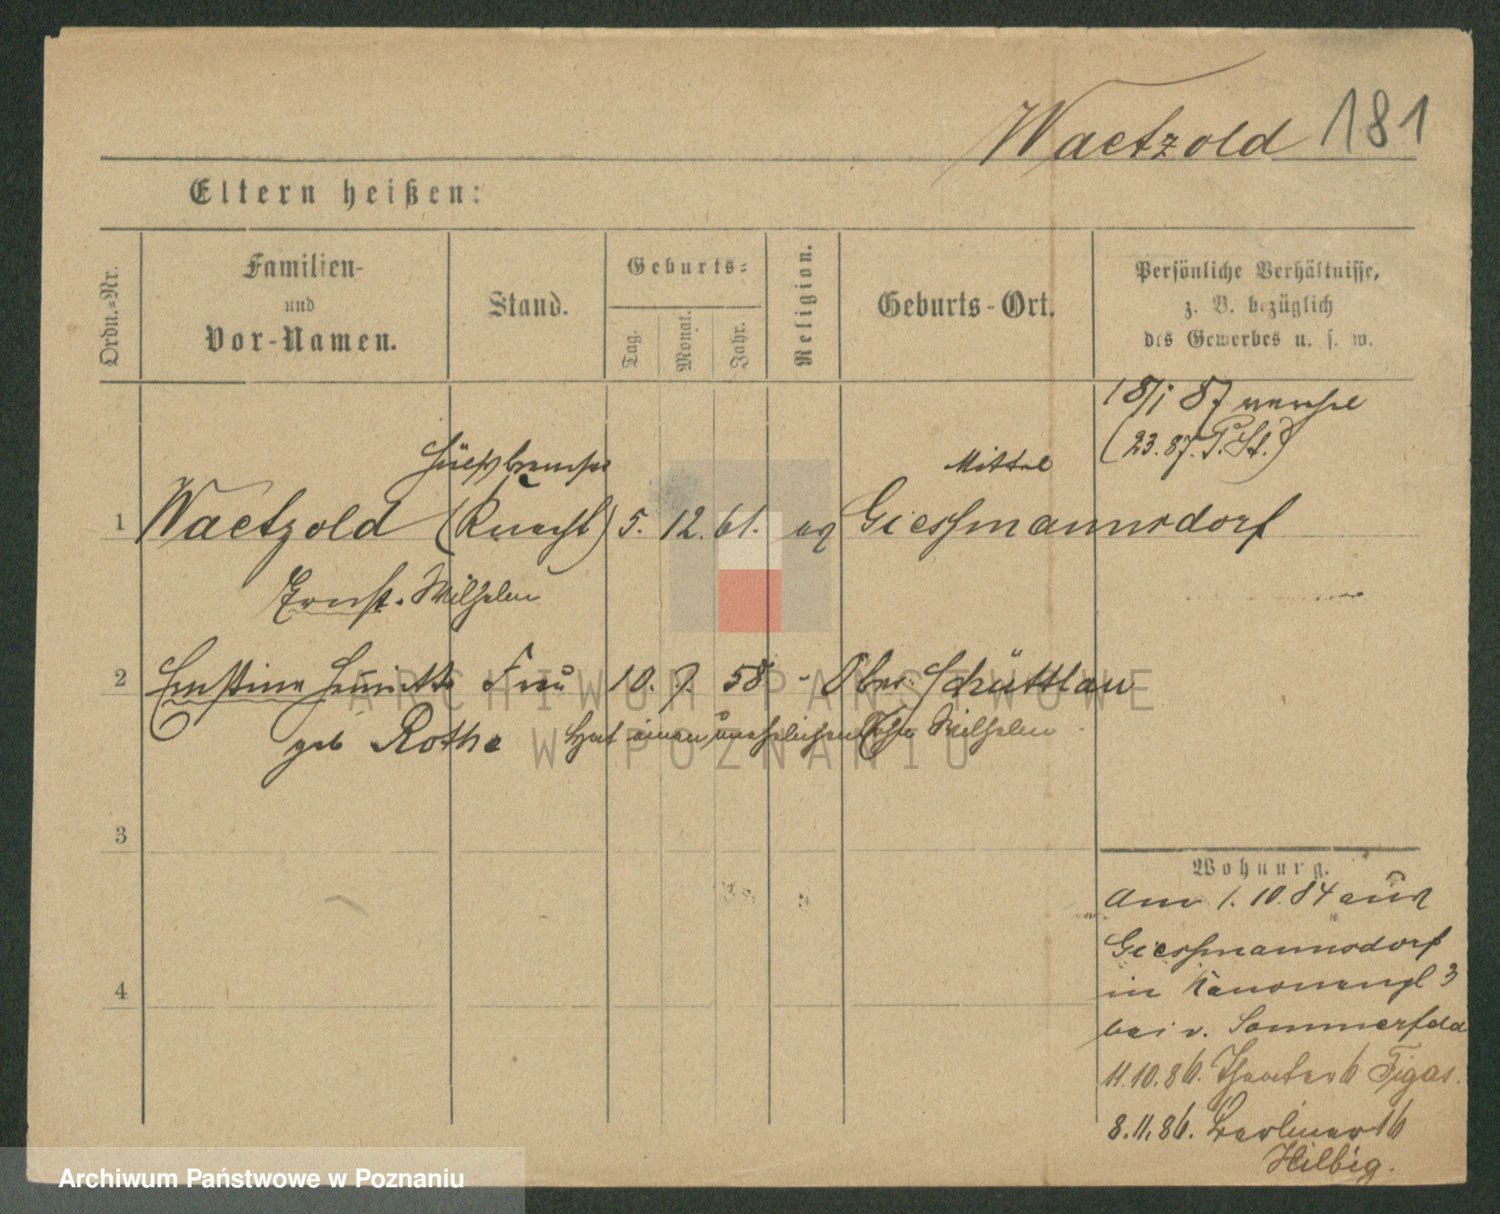 Waetzold 181
Eltern heißen:
Ordn.-Nr.
Familien-
und
Vor-Namen.
Stand.
Geburts-
Tag.
Monat.
Jahr.
Religion.
Geburts-Ort.
Persönliche Verhältnisse,
z. B. bezüglich
des Gewerbes u. s. w.
18/1 87
(23.87. P. St.)
Mittel
1 Waetzold (Knecht) 5. 12. 61. ev Giessmannsdorf
Ernst. Wilhelm
2 Ernstine Henriette Frau 10. 7. 58 - Ober Schüttlau
geb Rothe hat einen unehelichen Sohn Wilhelm
3
4
Wohnung.
Am 1. 10. 84 aus
Giessmannsdorf
in Kanonenpl 3
bei v. Sommerfeld
11.10.86. Theater 6 Figas.
8.11.86. Berliner 16
Hilbig.
ARCHIWUM PAŃSTWOWE
W POZNANIU
Archiwum Państwowe w Poznaniu